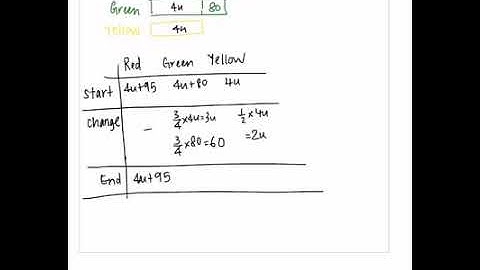 Green 4u 80
Yellow 4u
Red Green Yellow
Start 4u+95 4u+80 4u
Change - 3/4×4u=3u 1/2×4u
3/4×80=60 =2u
End 4u+95